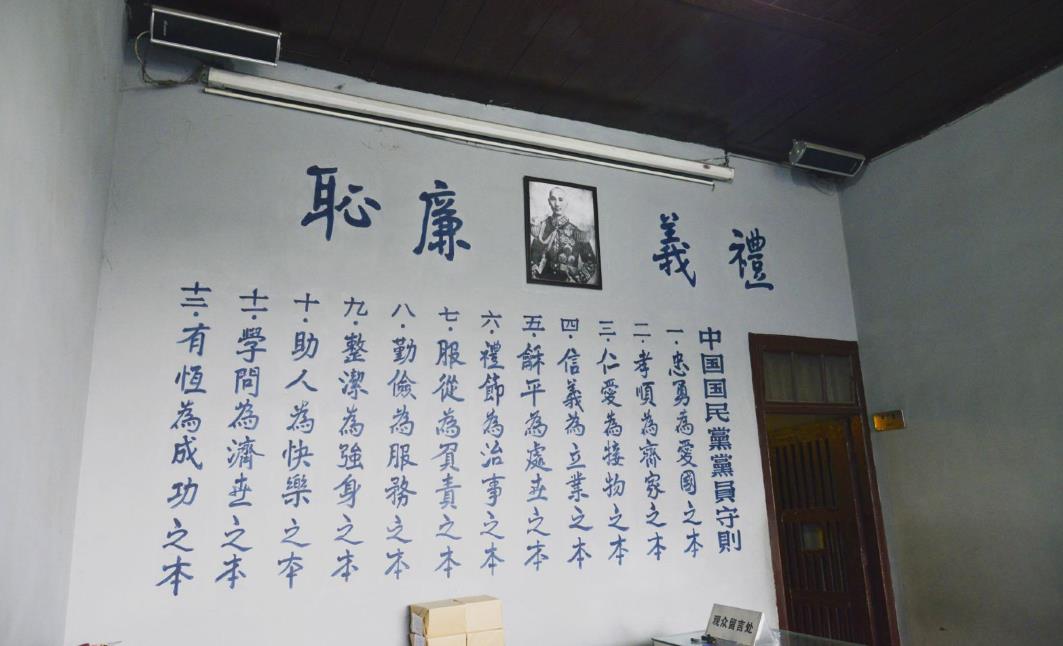 禮義廉恥
中国国民黨黨員守則
一·忠勇為愛國之本
二·孝順為齊家之本
三·仁愛為接物之本
四·信義為立業之本
五·龢平為處世之本
六·禮節為治事之本
七·服從為負責之本
八·勤儉為服務之本
九·整潔為強身之本
十·助人為快樂之本
十一·學問為濟世之本
十二·有恆為成功之本
观众留言处